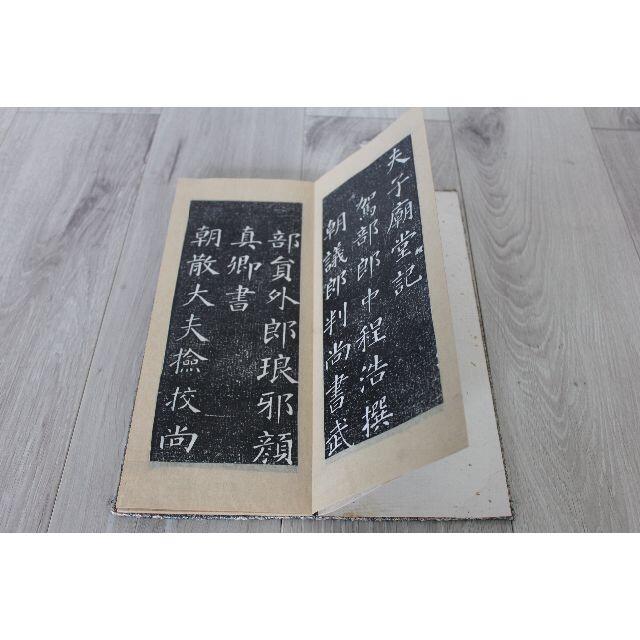 夫子廟堂記
駕部郎中程浩撰
朝議郎判尚書武
部貟外郎琅邪顔
真卿書
朝散大夫撿挍尚